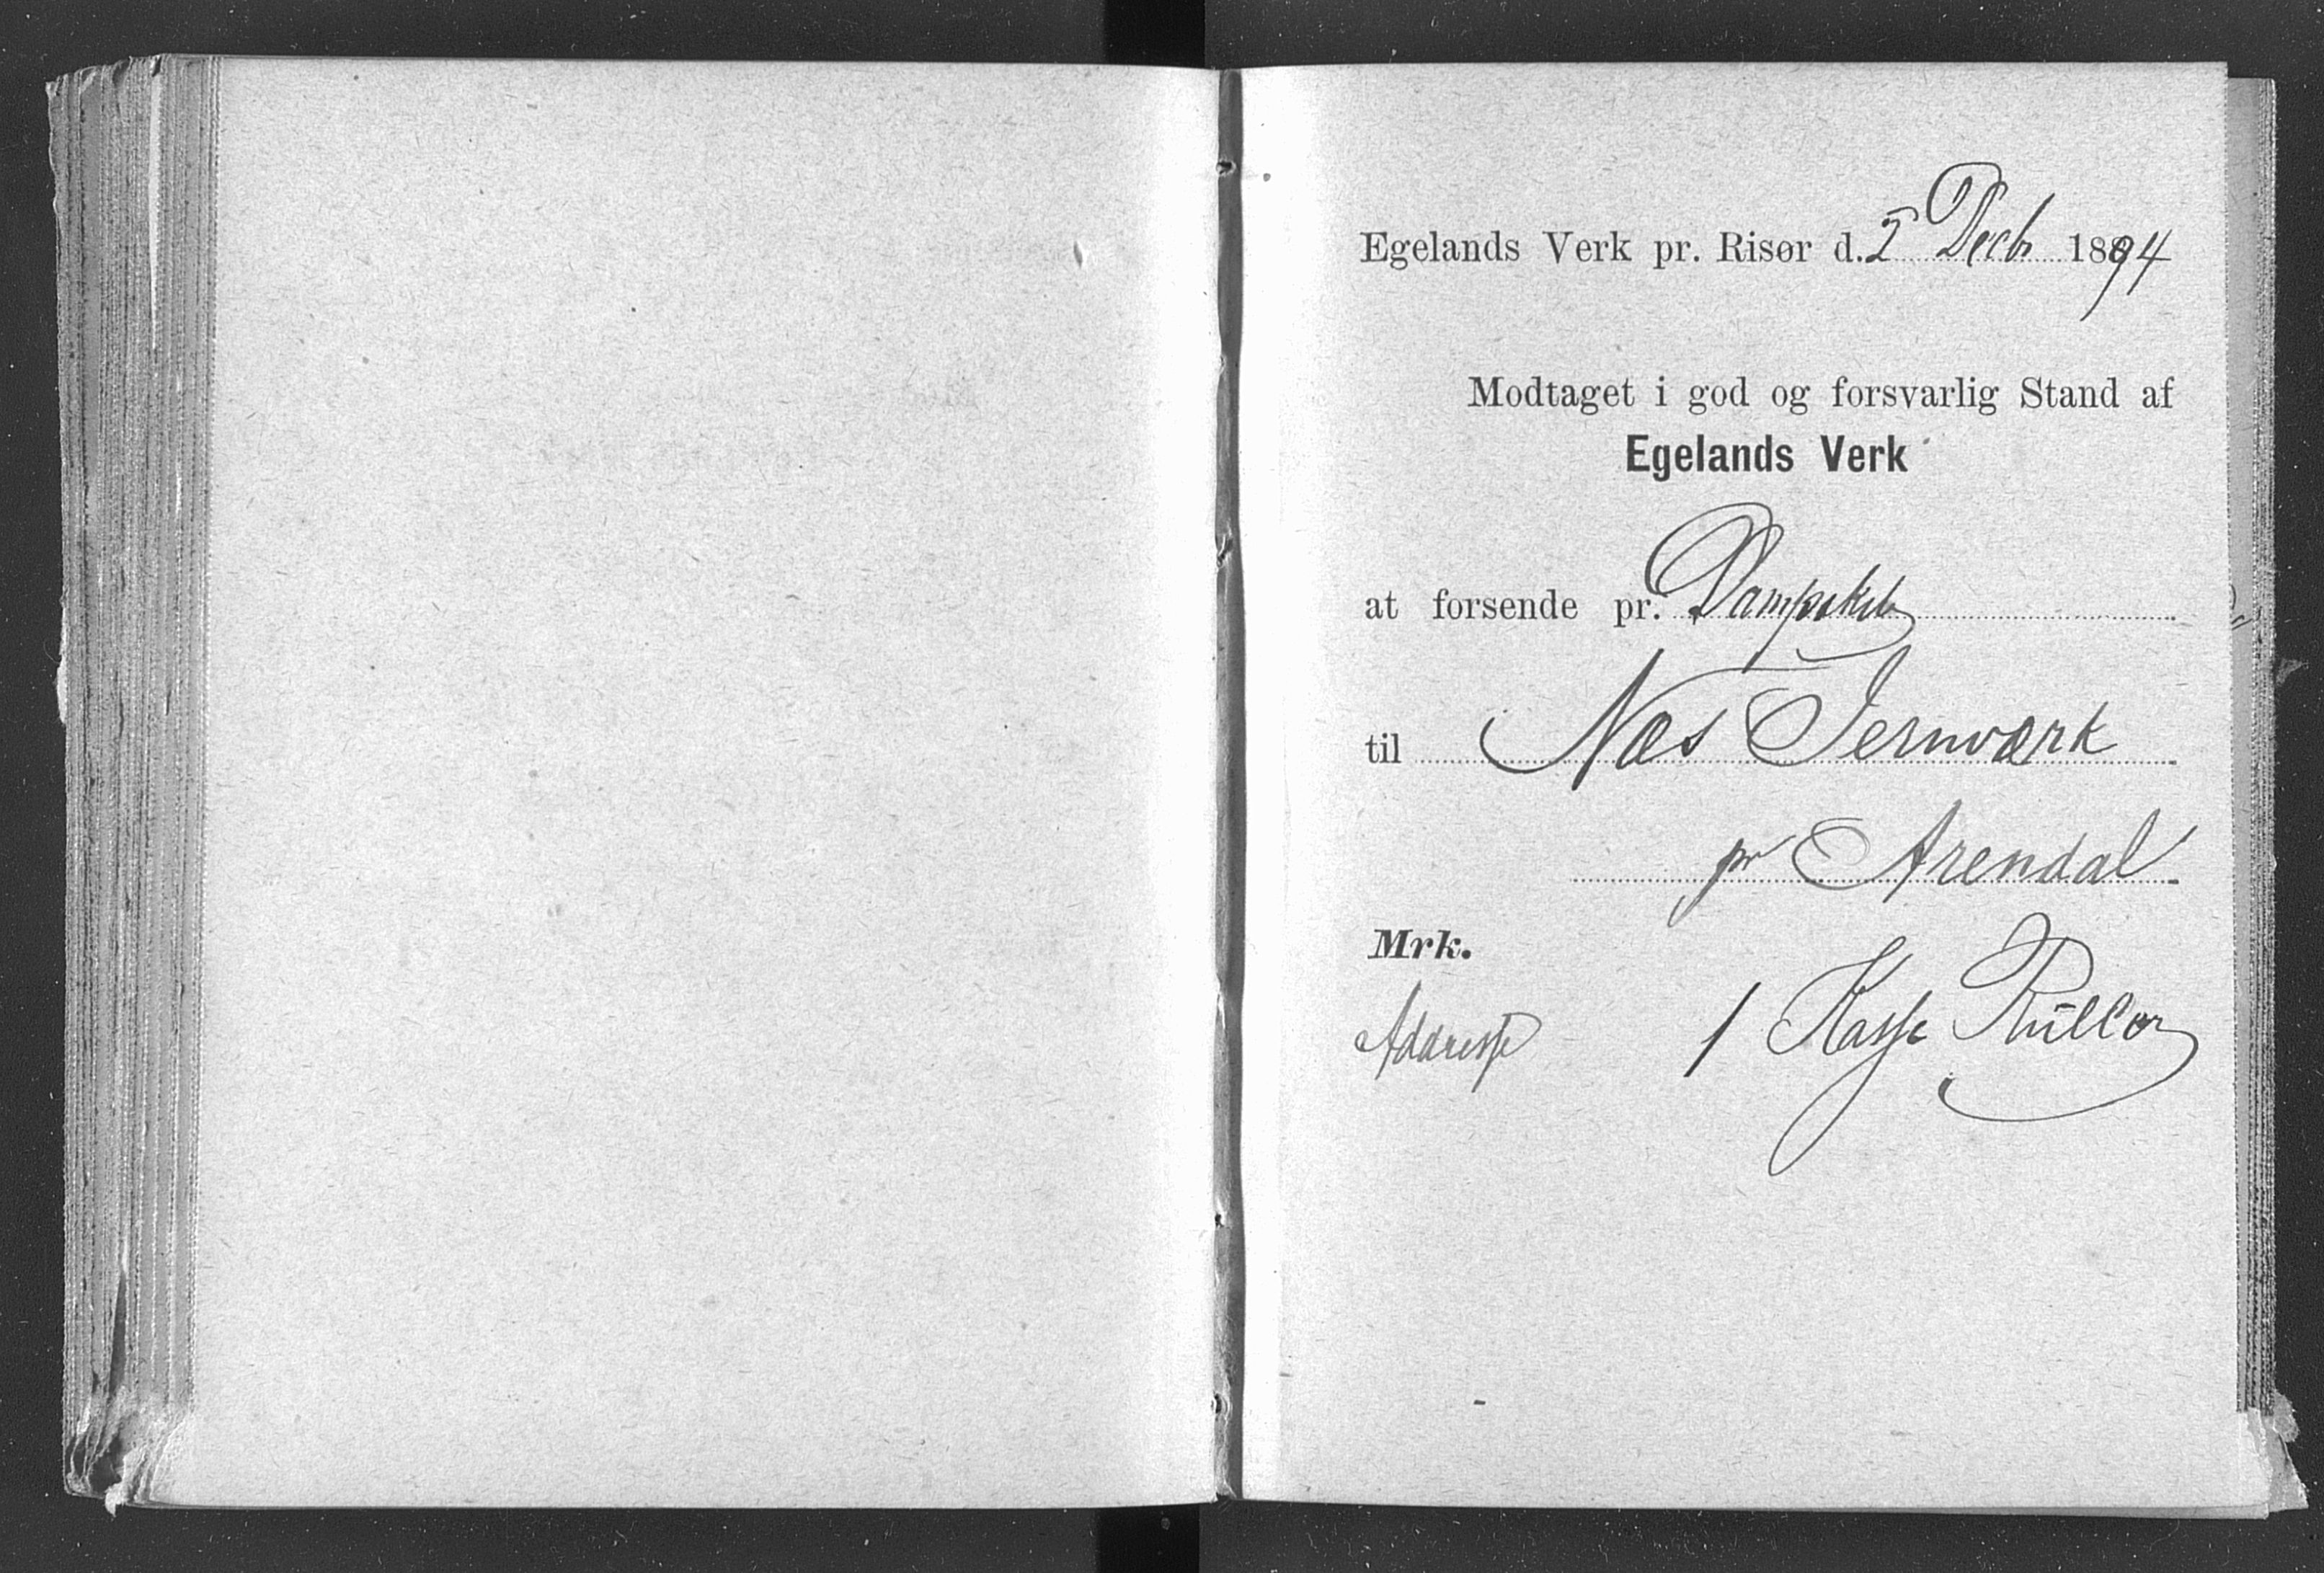 Egelands Verk pr. Risør d. 2 Decb 1894
Modtaget i god og forsvarlig Stand af
Egelands Verk
at forsende pr. Dampskib
til Næs Jernværk
pr Arendal
Mrk.
Addresse 1 Kasse Ruller